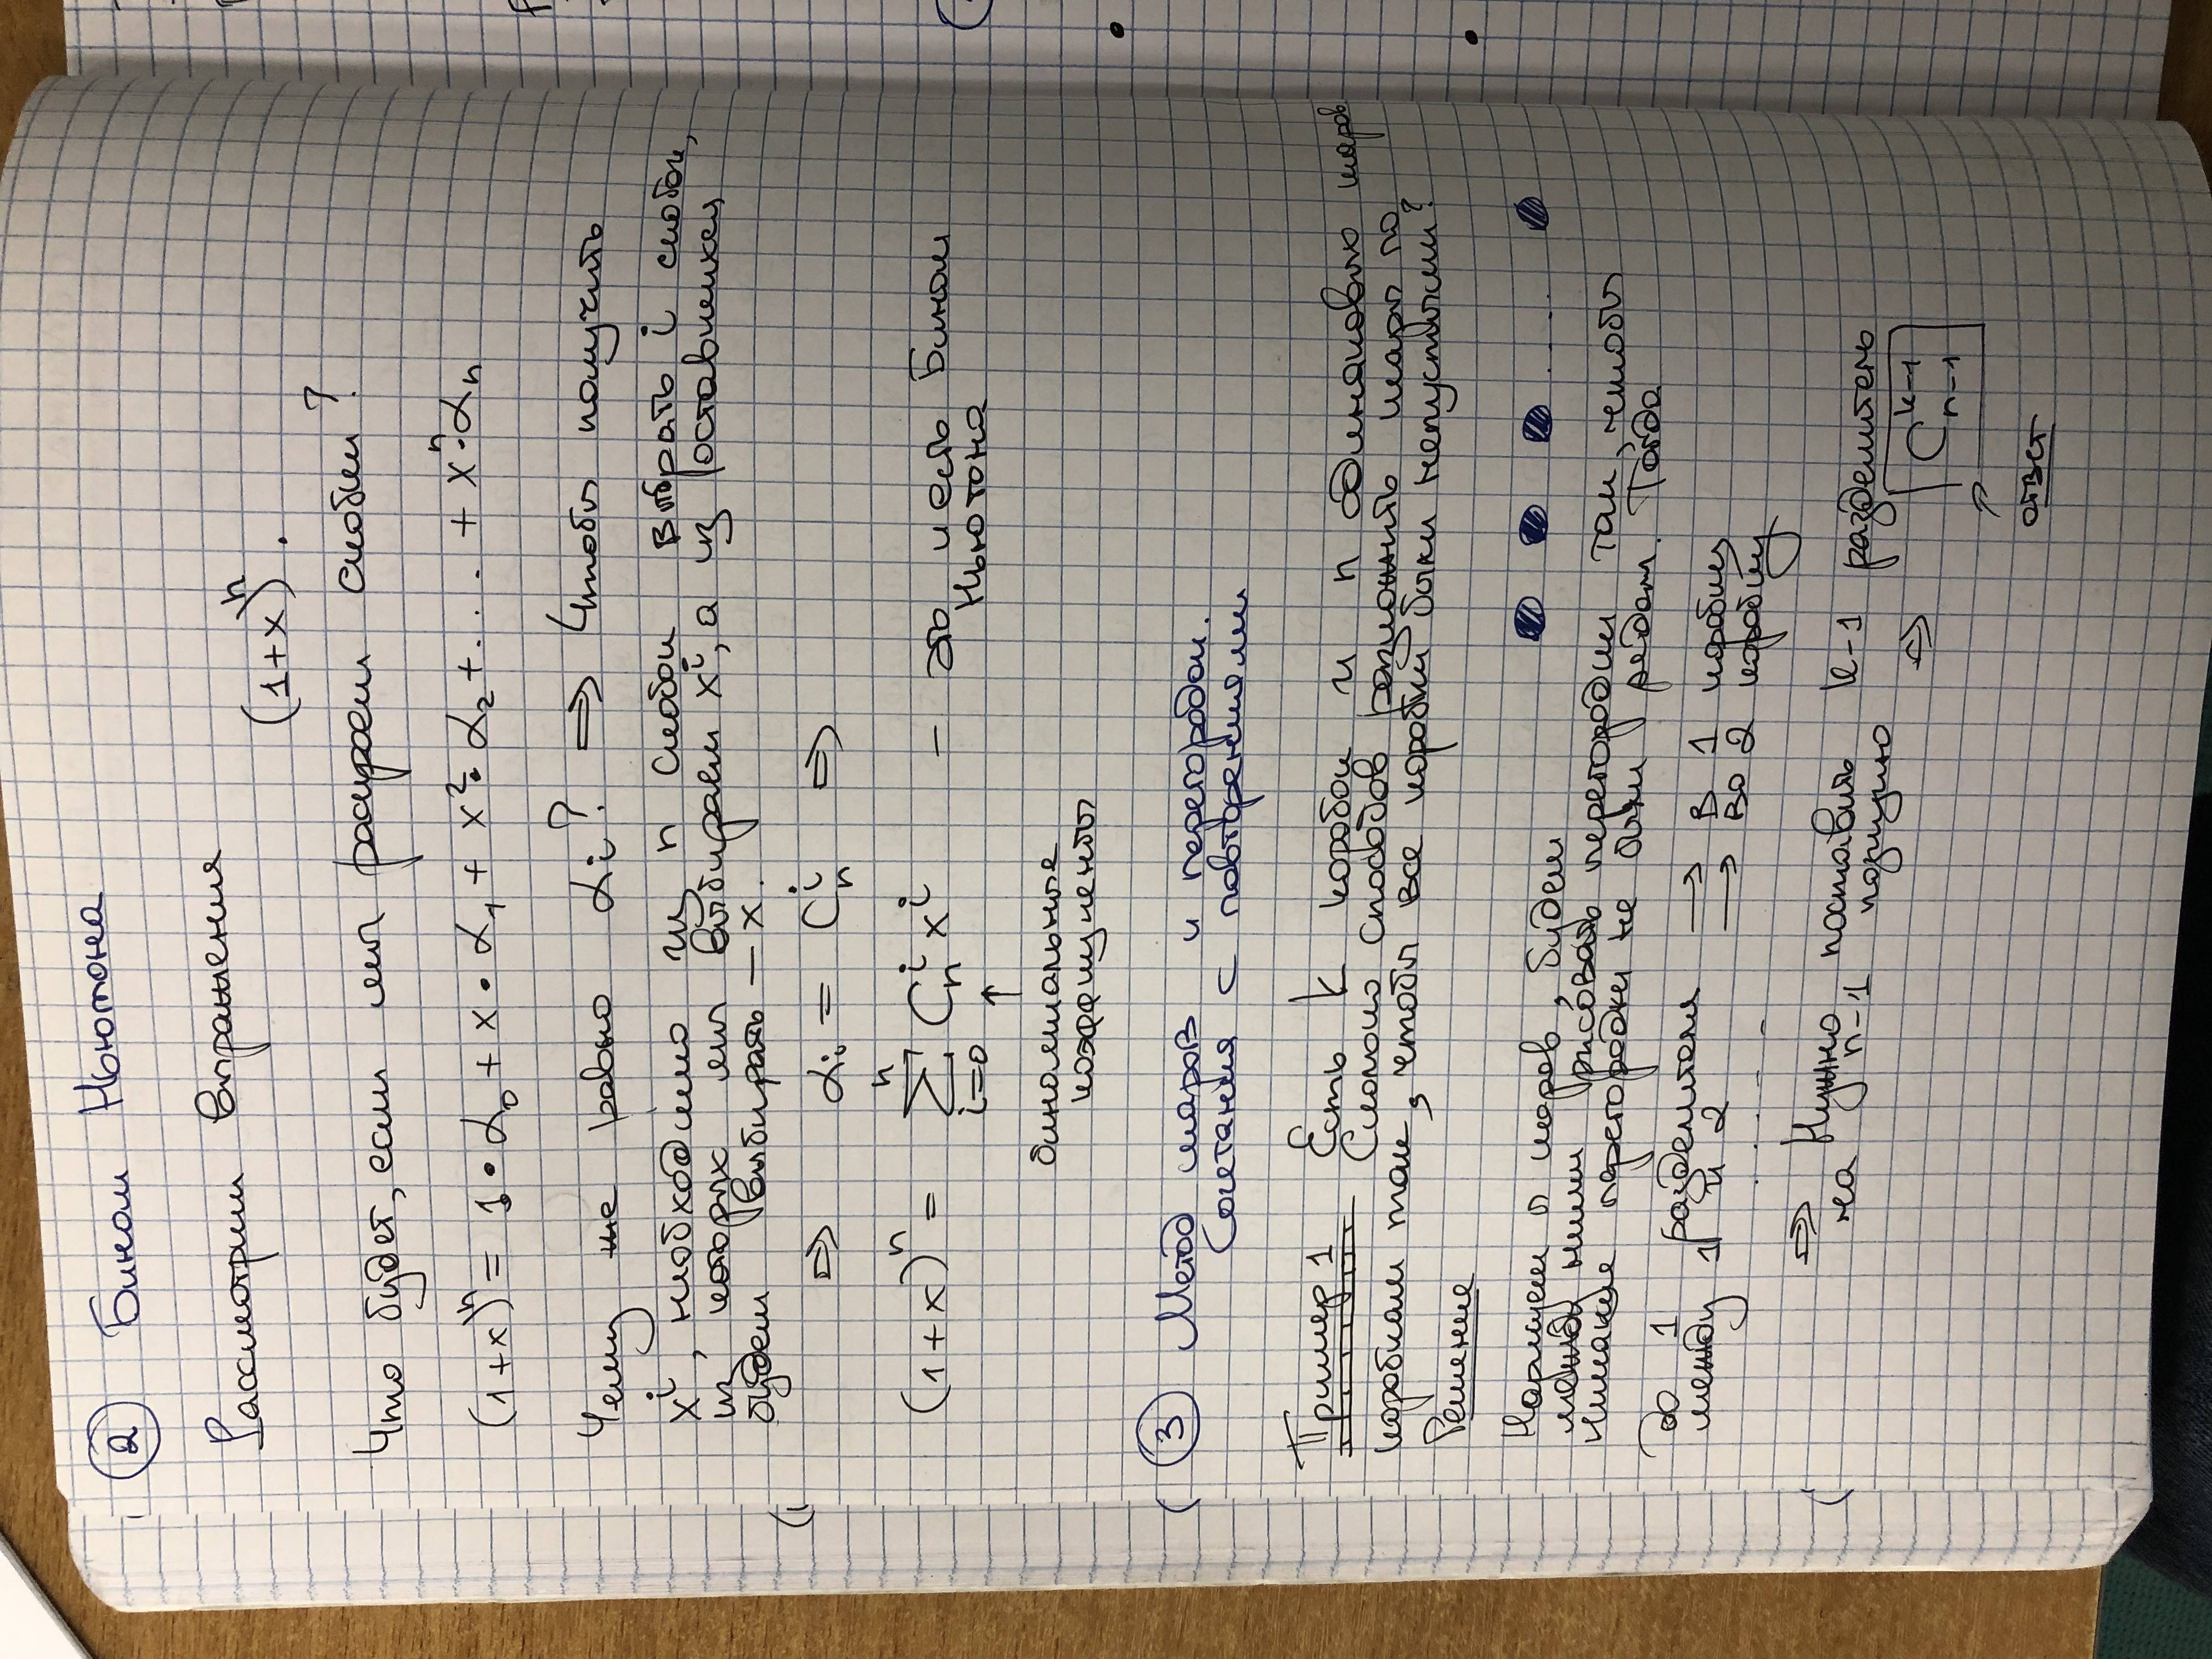 ② Бином Ньютона
Рассмотрим выражения
(1+x)ⁿ.
Что будет, если мы раскроем скобки?
(1+x)ⁿ = 1·α₀ + x·α₁ + x²·α₂ + .... + xⁿ·αₙ
Чему же равно αᵢ? ⇒ Чтобы получить
xⁱ, необходимо из n скобок выбрать i скобок,
из которых мы выбираем xⁱ, а из оставшихся
будем выбирать — x.
⇒ αᵢ = Cₙⁱ ⇒
(1+x)ⁿ = ∑ᵢ₌₀ⁿ Cₙⁱ xⁱ — это и есть Бином
Ньютона
↑
биномиальные
коэффициенты
③ Метод шаров и перегородок.
Сочетания с повторениями
Пример 1 Есть k коробок и n одинаковых шаров.
Сколько способов разложить шары по
коробкам так, чтобы все коробки были непустыми?
Решение
Нарисуем n шаров, будем .....
между ними рисовать перегородки так, чтобы
никакие перегородки не были рядом. Тогда
до 1 разделителя → в 1 коробку
между 1 и 2 → во 2 коробку
......
⇒ Нужно поставить k-1 разделитель
на n-1 позицию
⇒ Cₙ₋₁ᵏ⁻¹
ответ